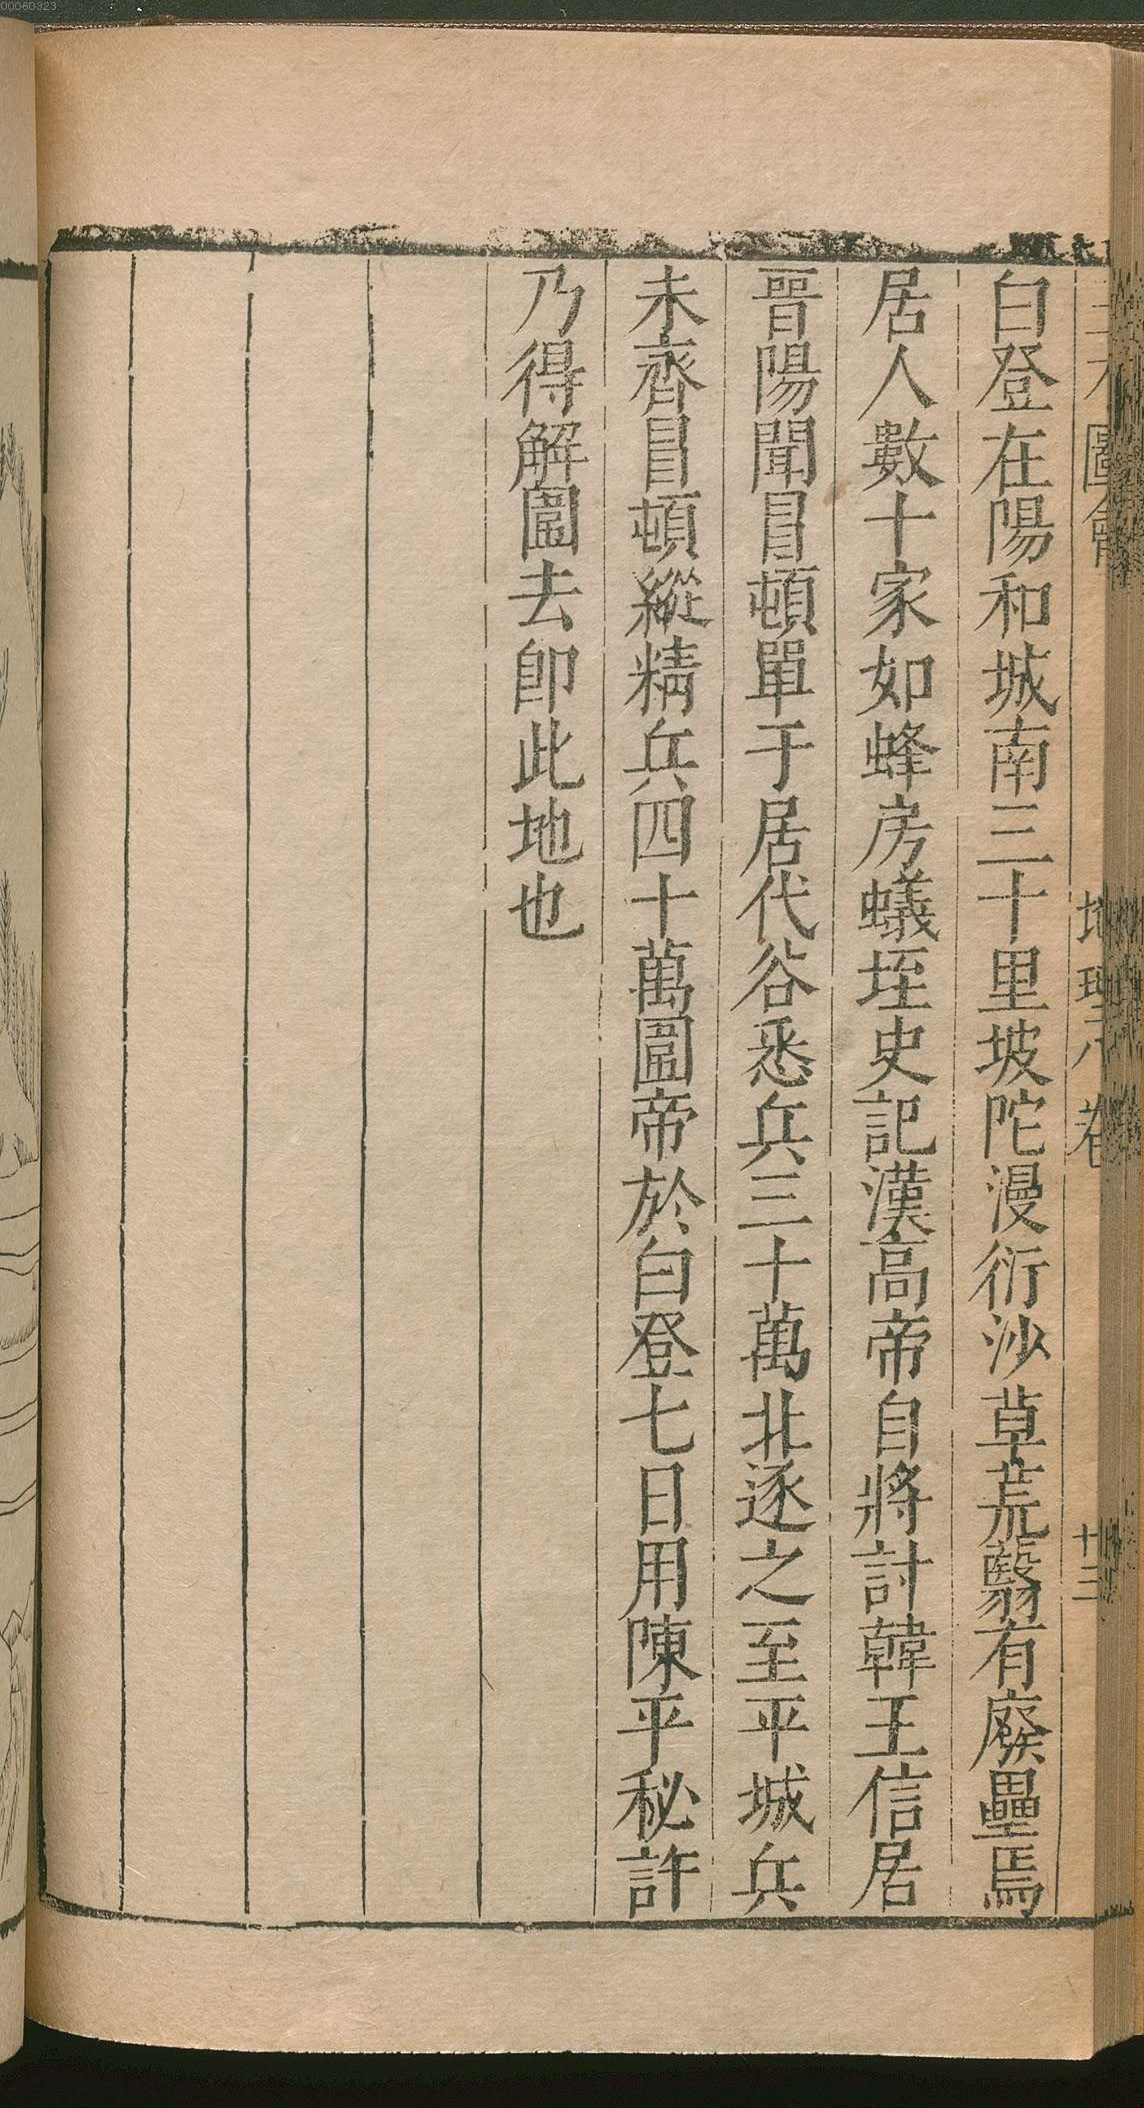 00060323
三才圖會 地理八卷 十三
白登在陽和城南三十里坡陀漫衍沙草荒翳有廢壘焉
居人數十家如蜂房蟻垤史記漢高帝自將討韓王信居
晉陽聞冒頓單于居代谷悉兵三十萬北逐之至平城兵
未齊冒頓縱精兵四十萬圍帝於白登七日用陳平秘許
乃得解圍去卽此地也